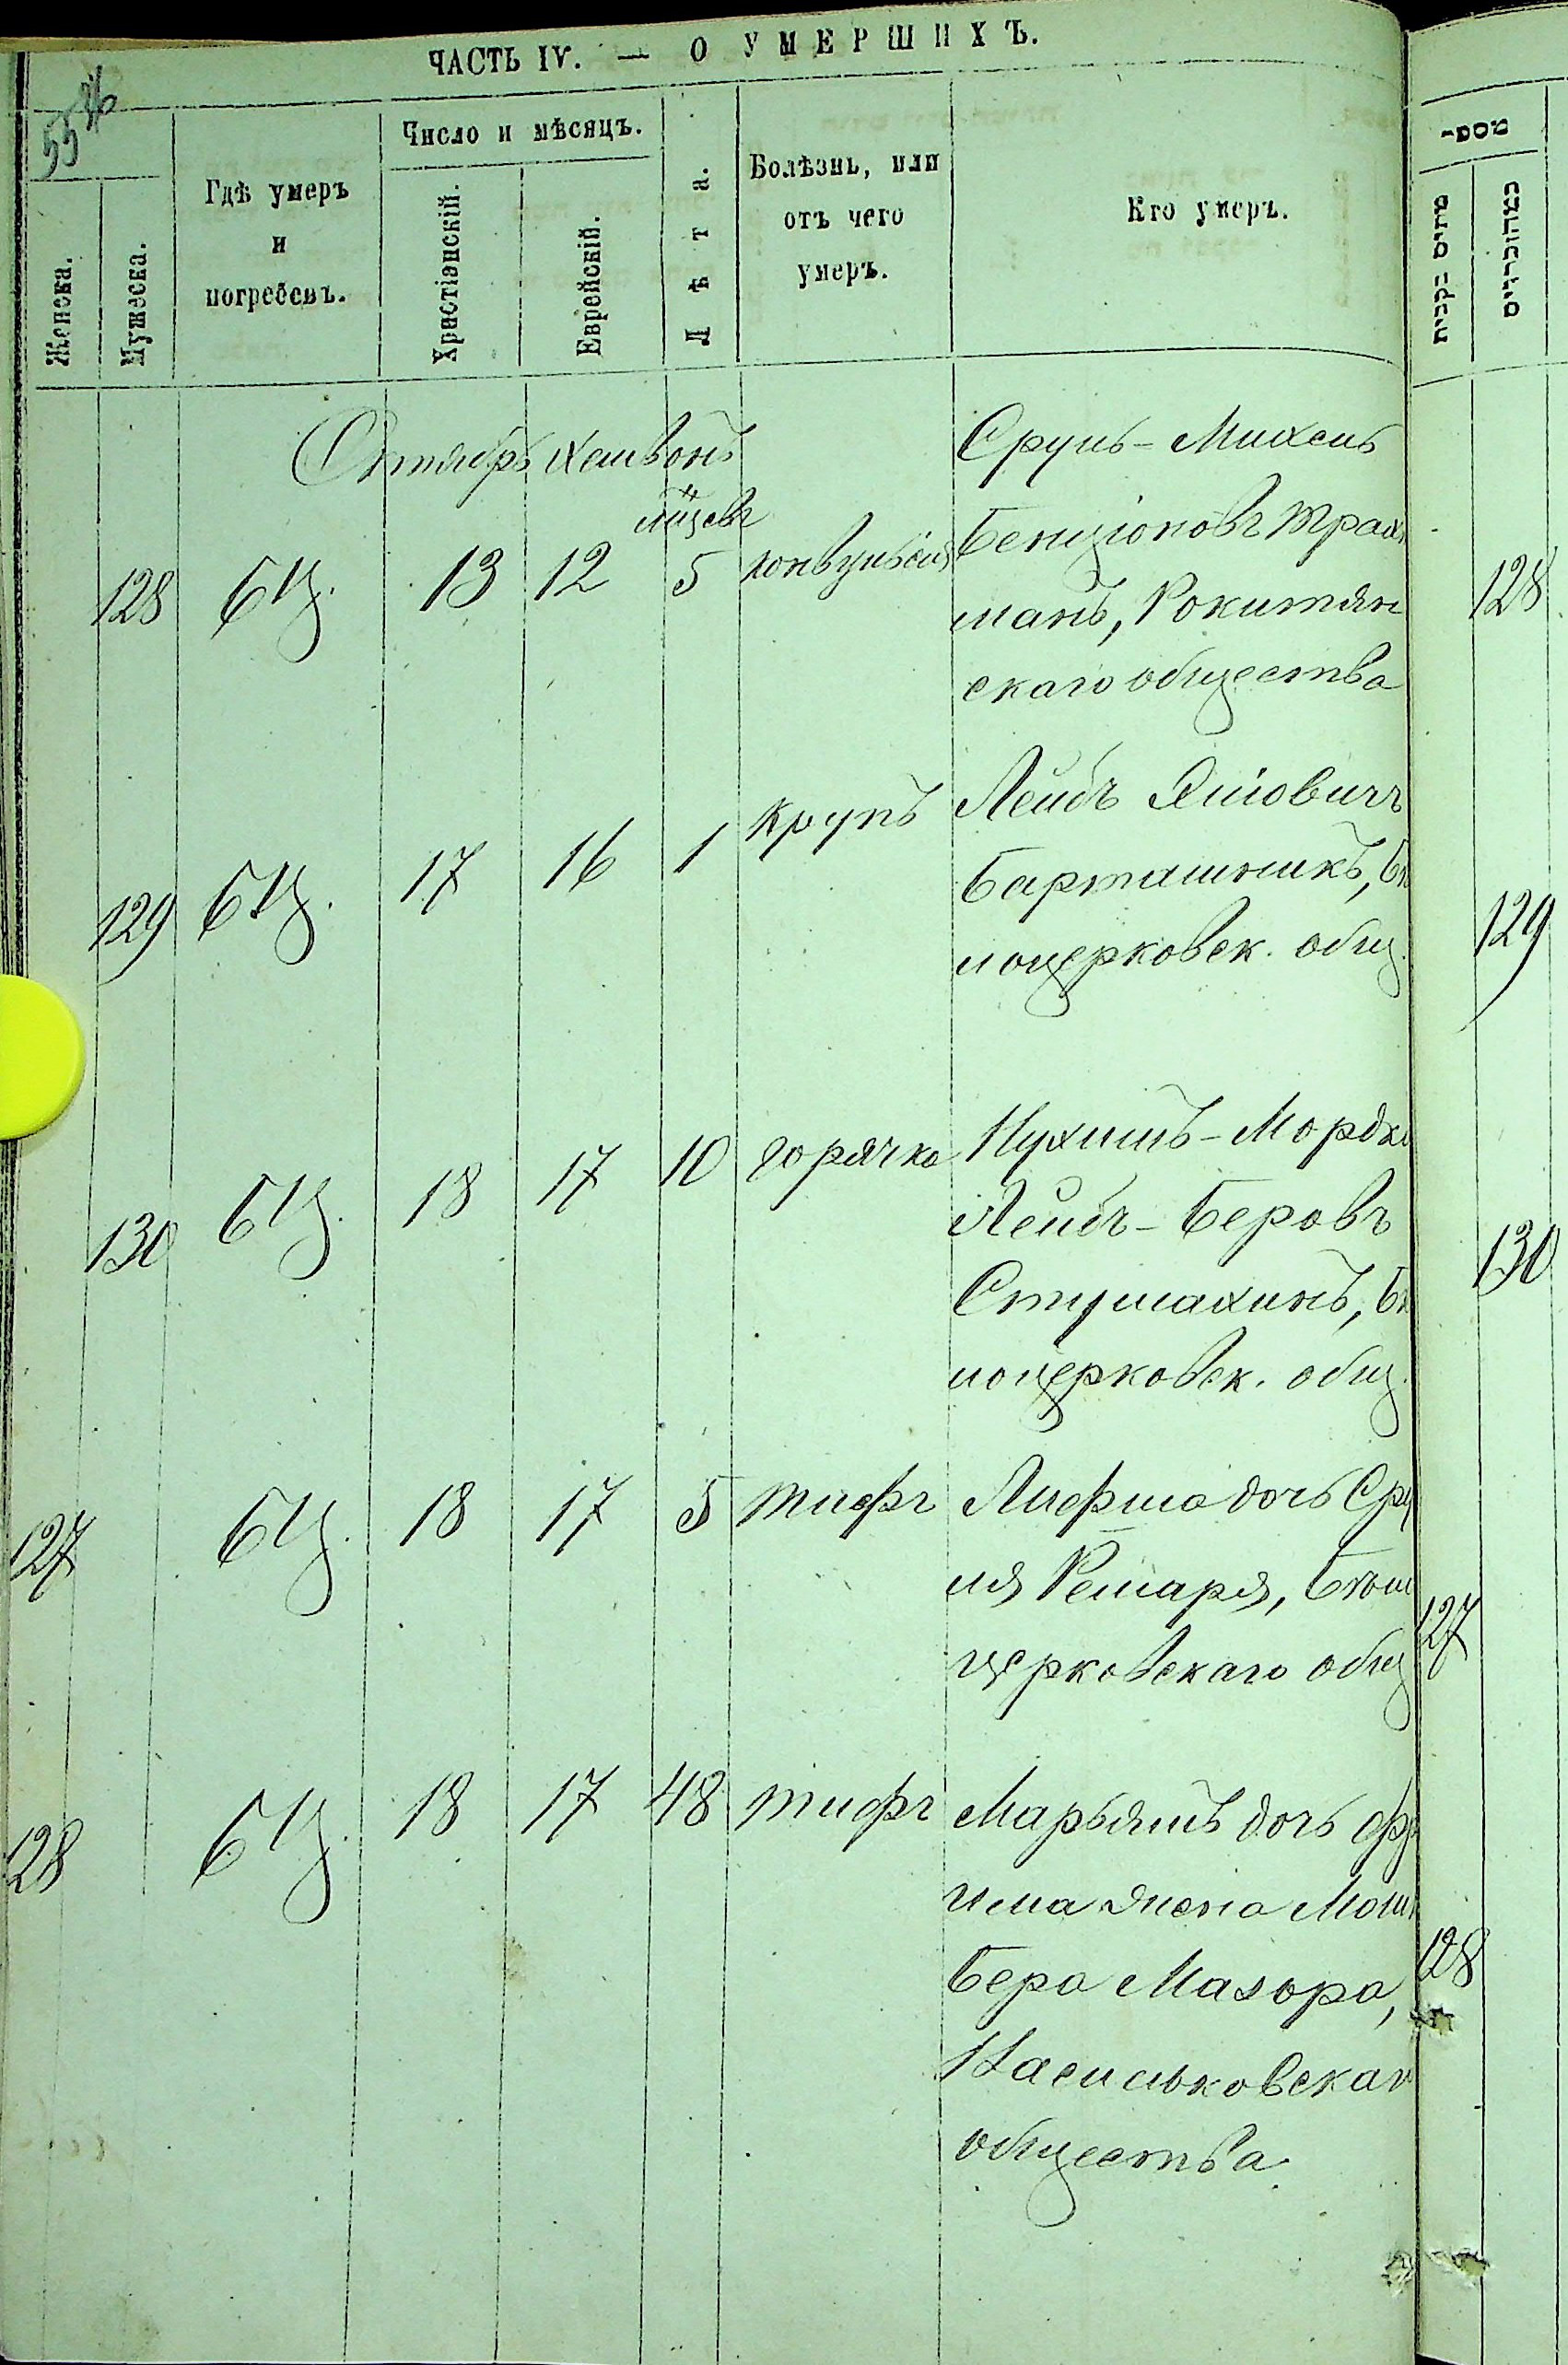 ЧАСТЬ IV. — О УМЕРШИХЪ.
55
Женска.
Мужеска.
Гдѣ умеръ
и
погребенъ.
Число и мѣсяцъ.
Христіанскій.
Еврейскій.
Лѣта.
Болѣзнь, или
отъ чего
умеръ.
Кто умеръ.
מספר
Октябрь Хешвонъ
128 БЦ. 13 12 5 конвульсія
Сруль-Михель
Бенціоновъ Трах
манъ, Рокитян
скаго общества
128
129 БЦ. 17 16 1 крупъ
Лейбъ
Барташникъ, Бѣ
лоцерковск. общ.
129
130 БЦ. 18 17 10 горячка
Нухимъ-Мордко
Лейбъ-Беровъ
Стумахинъ, Бѣ
лоцерковск. общ.
130
127 БЦ. 18 17 5 тифъ
Лифша дочь Сру
ля Ремаря, Бѣло
церковскаго общ
127
128 БЦ. 18 17 48 тифъ
Марьямъ дочь Фр
има жена Мош
Бера Мазора,
Васильковскаго
общества.
128